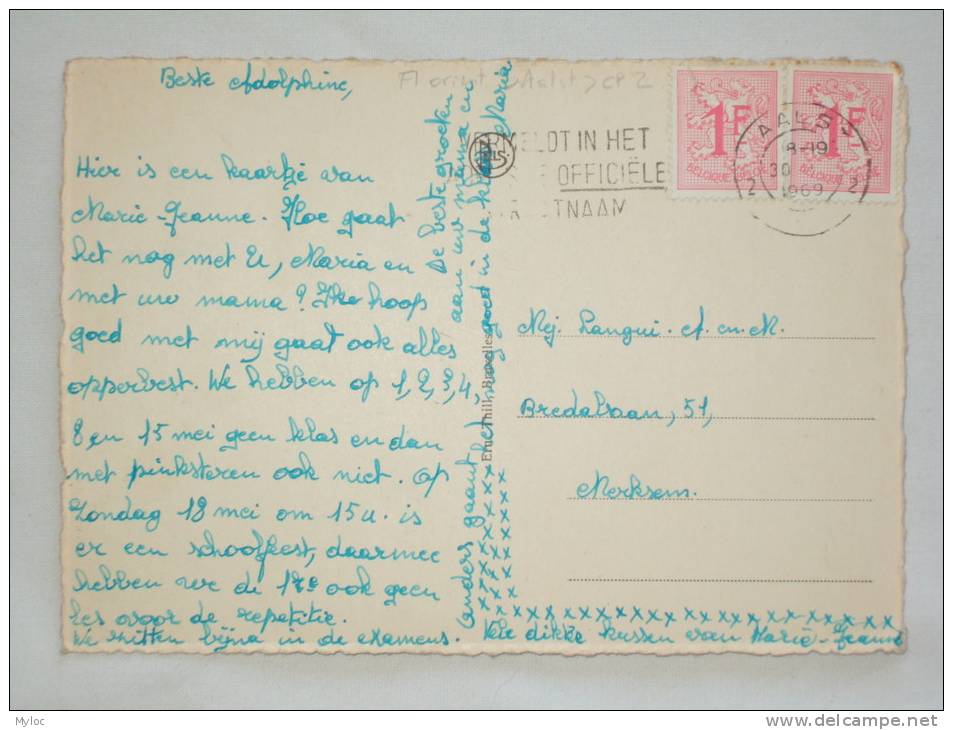 Beste Adolphine,
Hier is een kaartje van
Marie-Jeanne. Hoe gaat
het nog met U, Maria en
met uw mama? Ik hoop
goed met mij gaat ook alles
opperbest. We hebben op 1, 2, 3, 4,
8 en 15 mei geen klas en dan
met pinksteren ook niet. Op
Zondag 18 mei om 15u. is
er een schoolfeest, daarmee
hebben we de 17e ook geen
les voor de repetitie.
We zitten bijna in de examens.
De beste groeten
aan uw mama en Maria
anders gaat het nog goed in de klas
Vele dikke kussen van Marie-Jeanne
xxxxxxxxxxxxxxxxxxxxxxxx
Ern. Thill, Bruxelles
Aalst > cp 2
VERMELDT IN HET
OFFICIËLE
STRAATNAAM
1F
BELGIQUE-BELGIE
1F
BELGIQUE-BELGIE
AALST
18-19
30
1969
2 2
Mej. Langui. A. en. M.
Bredabaan, 51,
Merksem.
Myloc
delcampe.net